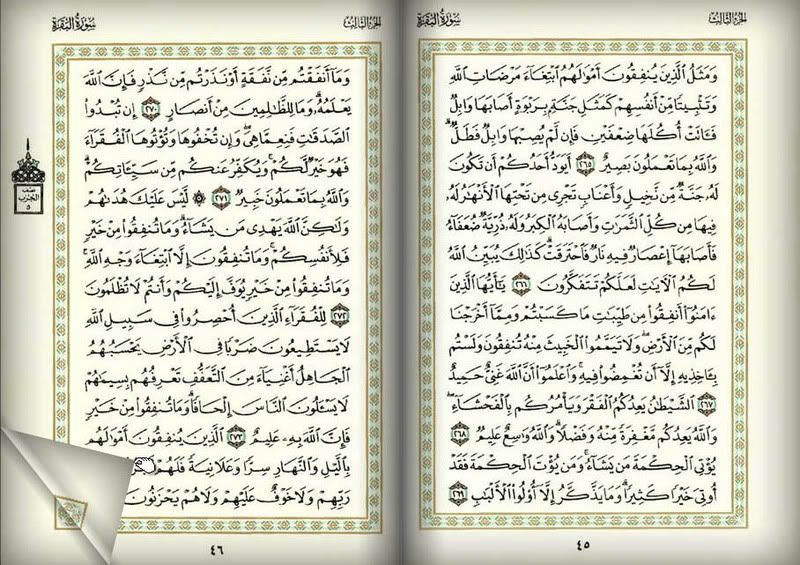 سُورَةُ البَقَرَةِ
الجزء الثالث
وَمَثَلُ ٱلَّذِينَ يُنفِقُونَ أَمْوَٰلَهُمُ ٱبْتِغَآءَ مَرْضَاتِ ٱللَّهِ
وَتَثْبِيتًا مِّنْ أَنفُسِهِمْ كَمَثَلِ جَنَّةٍۭ بِرَبْوَةٍ أَصَابَهَا وَابِلٌ
فَـَٔاتَتْ أُكُلَهَا ضِعْفَيْنِ فَإِن لَّمْ يُصِبْهَا وَابِلٌ فَطَلٌّ ۗ
وَٱللَّهُ بِمَا تَعْمَلُونَ بَصِيرٌ ٢٦٥ أَيَوَدُّ أَحَدُكُمْ أَن تَكُونَ
لَهُۥ جَنَّةٌ مِّن نَّخِيلٍ وَأَعْنَابٍ تَجْرِى مِن تَحْتِهَا ٱلْأَنْهَٰرُ لَهُۥ
فِيهَا مِن كُلِّ ٱلثَّمَرَٰتِ وَأَصَابَهُ ٱلْكِبَرُ وَلَهُۥ ذُرِّيَّةٌ ضُعَفَآءُ
فَأَصَابَهَآ إِعْصَارٌ فِيهِ نَارٌ فَٱحْتَرَقَتْ ۗ كَذَٰلِكَ يُبَيِّنُ ٱللَّهُ
لَكُمُ ٱلْـَٔايَٰتِ لَعَلَّكُمْ تَتَفَكَّرُونَ ٢٦٦ يَٰٓأَيُّهَا ٱلَّذِينَ
ءَامَنُوٓا۟ أَنفِقُوا۟ مِن طَيِّبَٰتِ مَا كَسَبْتُمْ وَمِمَّآ أَخْرَجْنَا
لَكُم مِّنَ ٱلْأَرْضِ ۖ وَلَا تَيَمَّمُوا۟ ٱلْخَبِيثَ مِنْهُ تُنفِقُونَ وَلَسْتُم
بِـَٔاخِذِيهِ إِلَّآ أَن تُغْمِضُوا۟ فِيهِ ۚ وَٱعْلَمُوٓا۟ أَنَّ ٱللَّهَ غَنِىٌّ حَمِيدٌ
٢٦٧ ٱلشَّيْطَٰنُ يَعِدُكُمُ ٱلْفَقْرَ وَيَأْمُرُكُم بِٱلْفَحْشَآءِ ۖ
وَٱللَّهُ يَعِدُكُم مَّغْفِرَةً مِّنْهُ وَفَضْلًا ۗ وَٱللَّهُ وَٰسِعٌ عَلِيمٌ ٢٦٨
يُؤْتِى ٱلْحِكْمَةَ مَن يَشَآءُ ۚ وَمَن يُؤْتَ ٱلْحِكْمَةَ فَقَدْ
أُوتِىَ خَيْرًا كَثِيرًا ۗ وَمَا يَذَّكَّرُ إِلَّآ أُو۟لُوا۟ ٱلْأَلْبَٰبِ ٢٦٩
٤٥
سُورَةُ البَقَرَةِ
الجزء الثالث
وَمَآ أَنفَقْتُم مِّن نَّفَقَةٍ أَوْ نَذَرْتُم مِّن نَّذْرٍ فَإِنَّ ٱللَّهَ
يَعْلَمُهُۥ ۗ وَمَا لِلظَّٰلِمِينَ مِنْ أَنصَارٍ ٢٧٠ إِن تُبْدُوا۟
ٱلصَّدَقَٰتِ فَنِعِمَّا هِىَ ۖ وَإِن تُخْفُوهَا وَتُؤْتُوهَا ٱلْفُقَرَآءَ
فَهُوَ خَيْرٌ لَّكُمْ ۚ وَيُكَفِّرُ عَنكُم مِّن سَيِّـَٔاتِكُمْ ۗ
وَٱللَّهُ بِمَا تَعْمَلُونَ خَبِيرٌ ٢٧١ ۞ لَّيْسَ عَلَيْكَ هُدَىٰهُمْ
وَلَٰكِنَّ ٱللَّهَ يَهْدِى مَن يَشَآءُ ۗ وَمَا تُنفِقُوا۟ مِنْ خَيْرٍ
فَلِأَنفُسِكُمْ ۚ وَمَا تُنفِقُونَ إِلَّا ٱبْتِغَآءَ وَجْهِ ٱللَّهِ ۚ
وَمَا تُنفِقُوا۟ مِنْ خَيْرٍ يُوَفَّ إِلَيْكُمْ وَأَنتُمْ لَا تُظْلَمُونَ
٢٧٢ لِلْفُقَرَآءِ ٱلَّذِينَ أُحْصِرُوا۟ فِى سَبِيلِ ٱللَّهِ
لَا يَسْتَطِيعُونَ ضَرْبًا فِى ٱلْأَرْضِ يَحْسَبُهُمُ
ٱلْجَاهِلُ أَغْنِيَآءَ مِنَ ٱلتَّعَفُّفِ تَعْرِفُهُم بِسِيمَٰهُمْ
لَا يَسْـَٔلُونَ ٱلنَّاسَ إِلْحَافًا ۗ وَمَا تُنفِقُوا۟ مِنْ خَيْرٍ
فَإِنَّ ٱللَّهَ بِهِۦ عَلِيمٌ ٢٧٣ ٱلَّذِينَ يُنفِقُونَ أَمْوَٰلَهُم
بِٱلَّيْلِ وَٱلنَّهَارِ سِرًّا وَعَلَانِيَةً فَلَهُمْ
رَبِّهِمْ وَلَا خَوْفٌ عَلَيْهِمْ وَلَا هُمْ يَحْزَنُونَ
٤٦
نصف
الحزب
٥